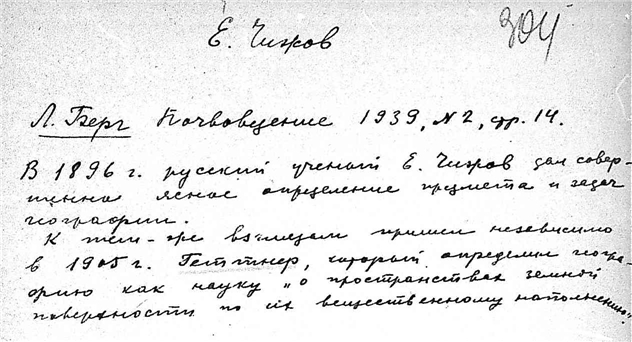 Е. Чижов
304
Л. Берг Почвоведение 1939, N 2, стр. 14.
В 1896 г. русский ученый Е. Чижов дал совер-
шенно ясное определение предмета и задач
географии.
К тем-же взглядам пришел независимо
в 1905 г. Геттнер, который определил геогра-
фию как науку „о пространствах земной
поверхности по их вещественному наполнению".